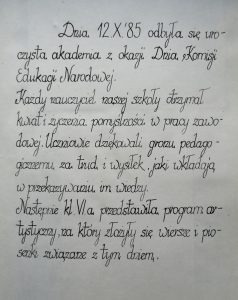 Dnia 12 X '85 odbyła się uro-
czysta akademia z okazji Dnia Komisji
Edukacji Narodowej.
Każdy nauczyciel naszej szkoły otrzymał
kwiat i życzenia pomyślności w pracy zawo-
dowej. Uczniowie dziękowali gronu pedago-
gicznemu za trud i wysiłek jaki wkładają
w przekazywaniu im wiedzy.
Następnie kl. VI a przedstawiła program ar-
tystyczny, na który złożyły się wiersze i pio-
senki związane z tym dniem.